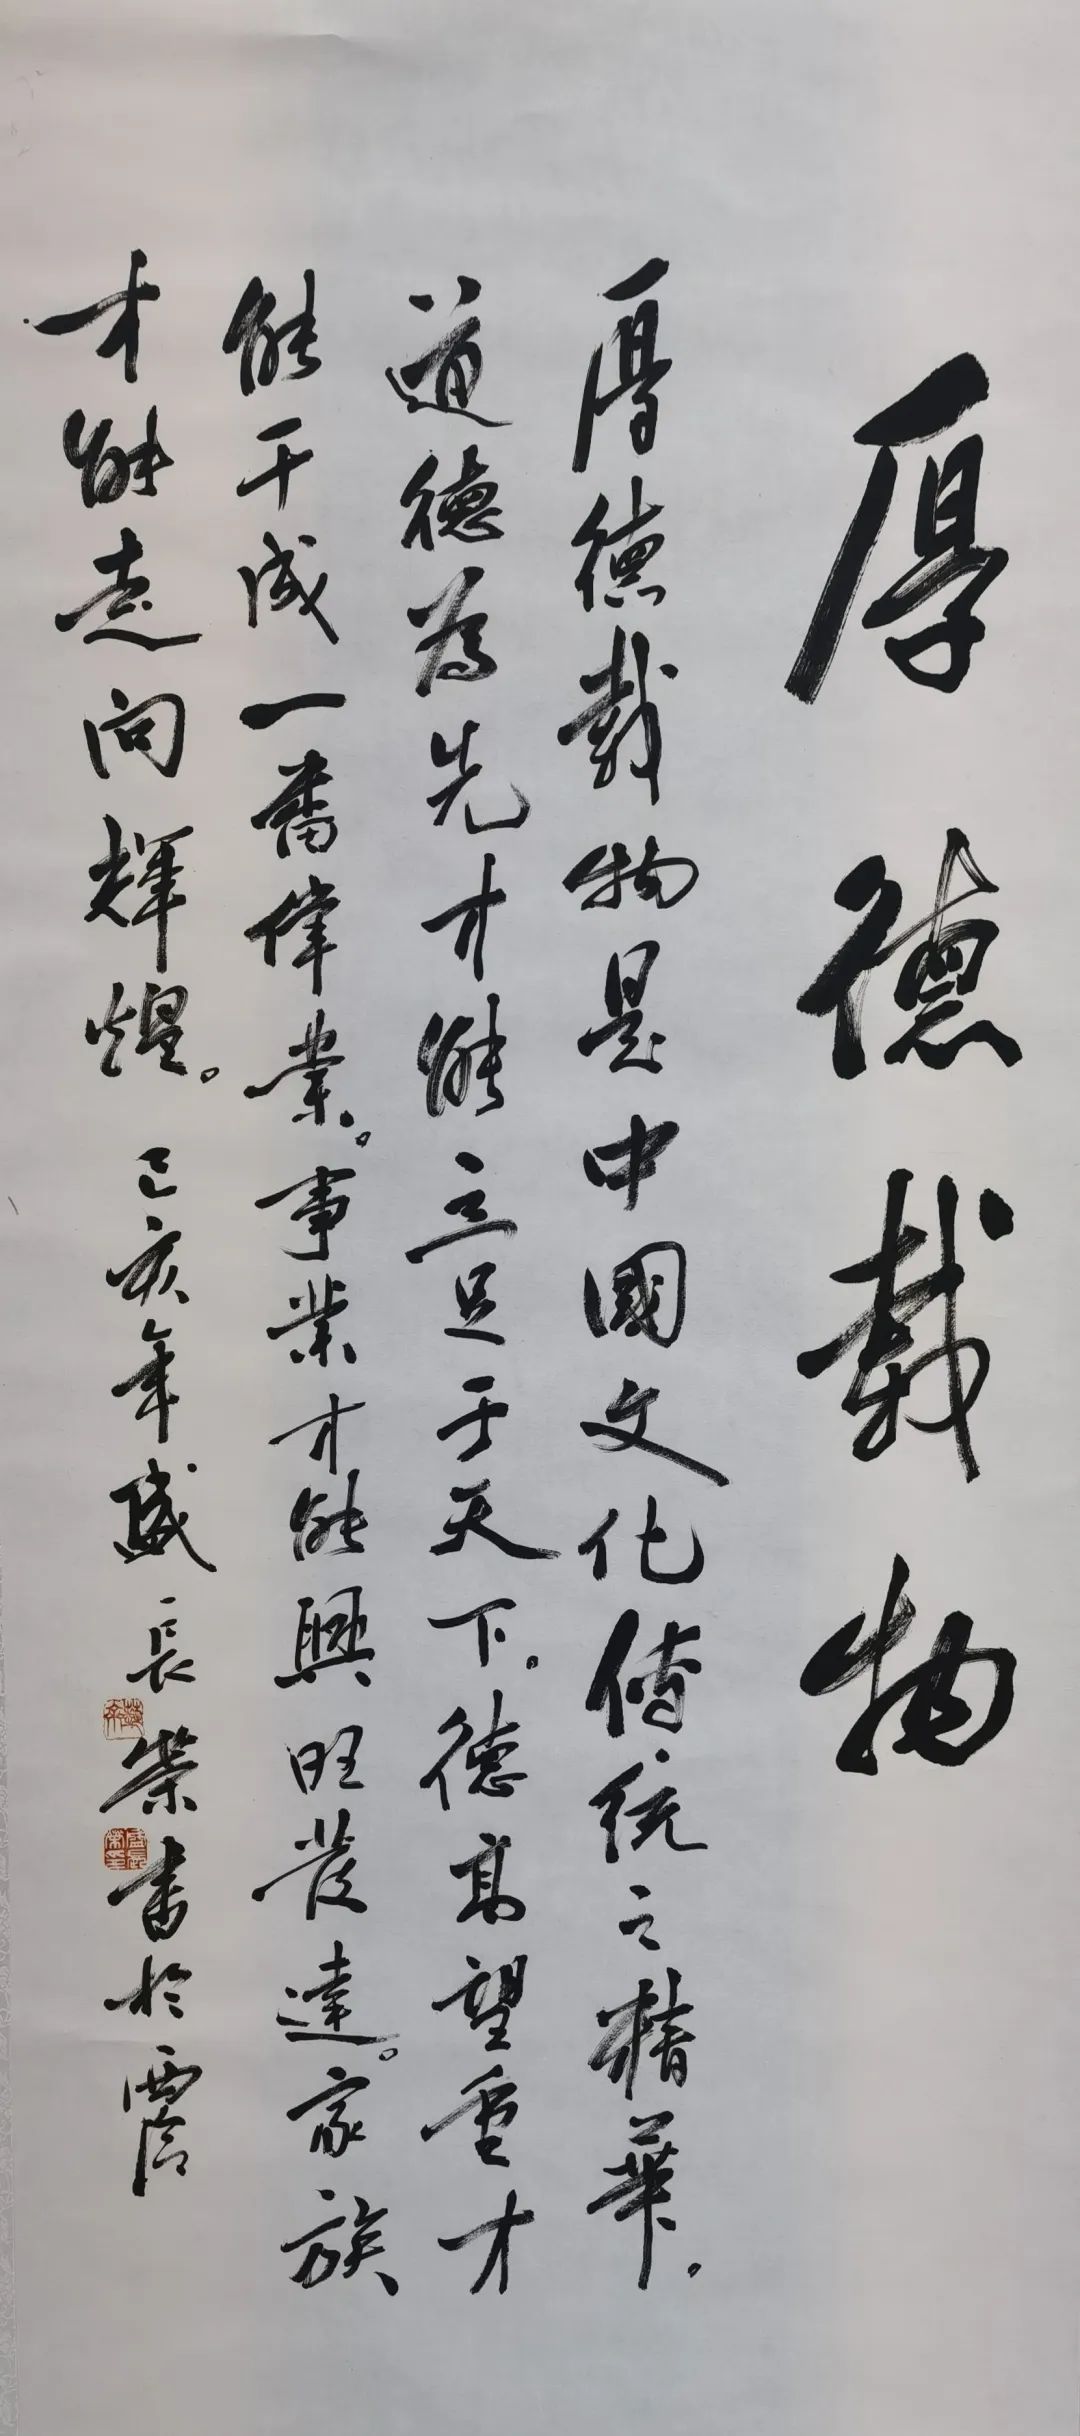 厚德载物
厚德载物是中國文化传统之精華。
道德為先才能立足于天下。德高望重才
能干成一番偉業。事業才能興旺發達。家族
才能走向輝煌。己亥年盛長榮書於西信